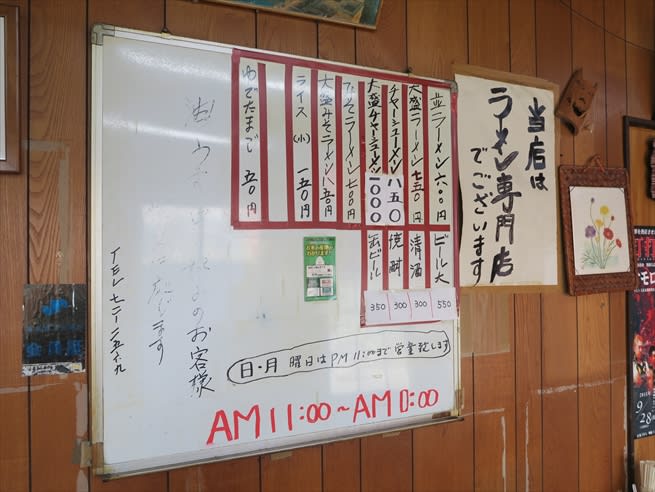 当店は
ラーメン専門店
でございます
並ラーメン 六〇〇円
大盛ラーメン 七五〇円
チャーシューメン 八五〇
大盛チャーシューメン 1000
みそラーメン 七〇〇円
大盛みそラーメン 八五〇円
ライス(小) 一五〇円
ゆでたまご 五〇円
ビール大 550
清酒 300
焼酎 300
缶ビール 350
日・月 曜日はPM 11:00まで営業致します
AM 11:00~AM 0:00
のお客様
致します
9
28